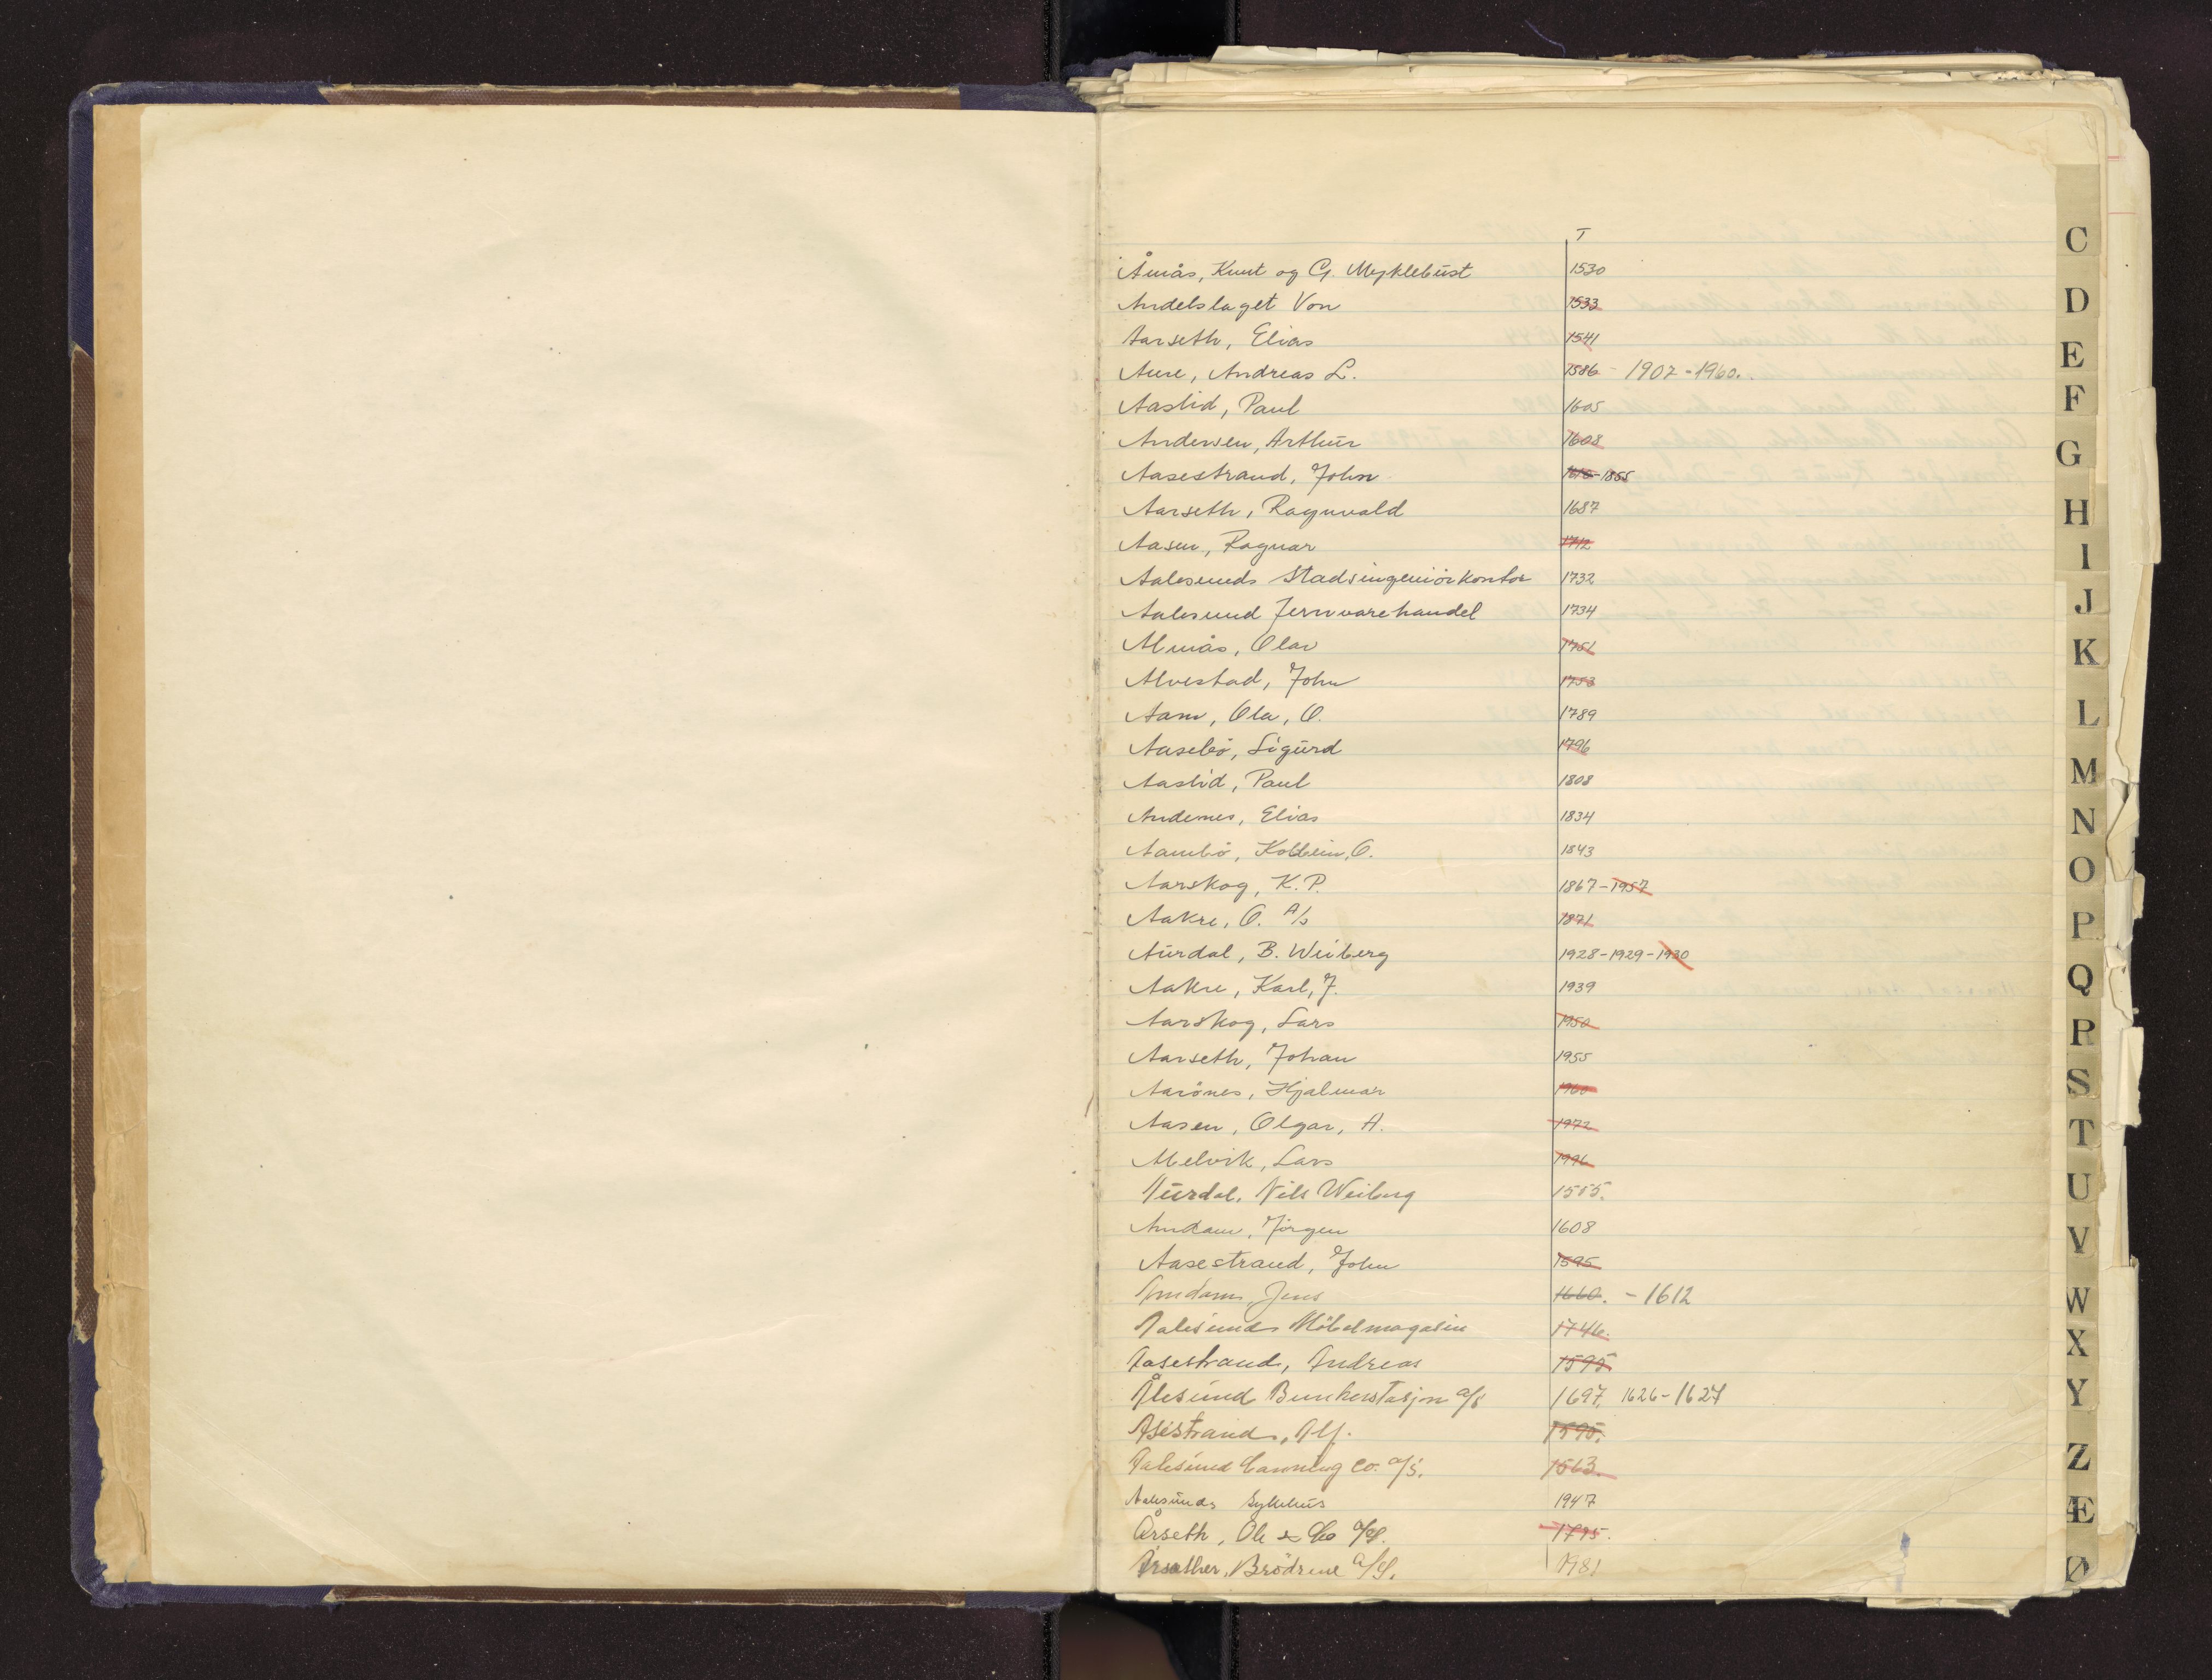 T
Åmås, Knut og G. Myklebust 1530
Andelslaget Von 1533
Aarseth, Elias 1541
Aure, Andreas L. 1586 - 1907 - 1960.
Aaslid, Paul 1605
Andersen, Arthur 1608
Aasestrand, John 1855
Aarseth, Ragnvald 1687
Aasen, Ragnar 1712
Aalesunds Stadsingeniörkontor 1732
Aalesund Jernvarehandel 1734
Almås, Olav 1751
Alvestad, John 1753
Aam, Ola, O. 1789
Aasebö, Sigurd 1796
Aaslid, Paul 1808
Andenes, Elias 1834
Aambö, Kolbein, O. 1843
Aarskog, K.P. 1867 - 1957
Aakre, O. A/s 1871
Aurdal, B. Weiberg 1928 - 1929 - 1930
Aakre, Karl, J. 1939
Aarskog, Lars 1950
Aarseth, Johan 1955
Aarönes, Hjalmar 1960
Aasen, Olgar, A. 1972
Alelvik, Lars 1996
Aurdal, Nils Weiberg 1515.
Amdam, Jörgen 1608
Aasestrand, John 1595
Amdam, Jens 1660. - 1612
Aalesunds Möbelmagasin 1746.
Aasestrand, Andreas 1595
Ålesund Bunkerstasjon a/s 1697, 1626 - 1627
Åsestrand, Alf. 1595.
Aalesund Canning Co. a/s. 1563.
Aalesunds Sykehus 1947
Årseth, Ole & Co a/s. 1795.
Årsæther, Brödrene a/s. 1981
C
D
E
F
G
H
I
J
K
L
M
N
O
P
Q
R
S
T
U
V
W
X
Y
Z
Æ
Ø